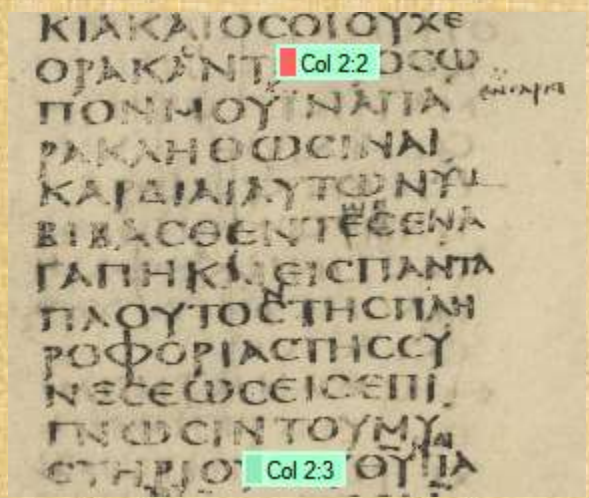 ΚΙΑΚΑΙΟϹΟΙΟΥΧΕ
ΟΡΑΚΑΝΤ Col 2:2 ΟϹΩ
ΠΟΝΜΟΥΪΝΑΠΑ
ΡΑΚΛΗΘΩϹΙΝΑΙ
ΚΑΡΔΙΑΙΑΥΤΩΝ
ΒΙΒΑϹΘΕΝΤΕϹΕΝΑ
ΓΑΠΗΚΑΙΕΙϹΠΑΝΤΑ
ΠΛΟΥΤΟϹΤΗϹΠΛΗ
ΡΟΦΟΡΙΑϹΤΗϹϹΥ
ΝΕϹΕΩϹΕΙϹΕΠΙ
ΓΝΩϹΙΝΤΟΥΜΥ
ϹΤΗΡΙΟΥ Col 2:3 ΘΥΠΑ